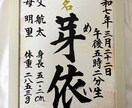 命名
令和七年三月二十二日
午後五時二分生
芽依
めい
身長 五一・二cm
体重 二八五三g
父 航太
母 明里